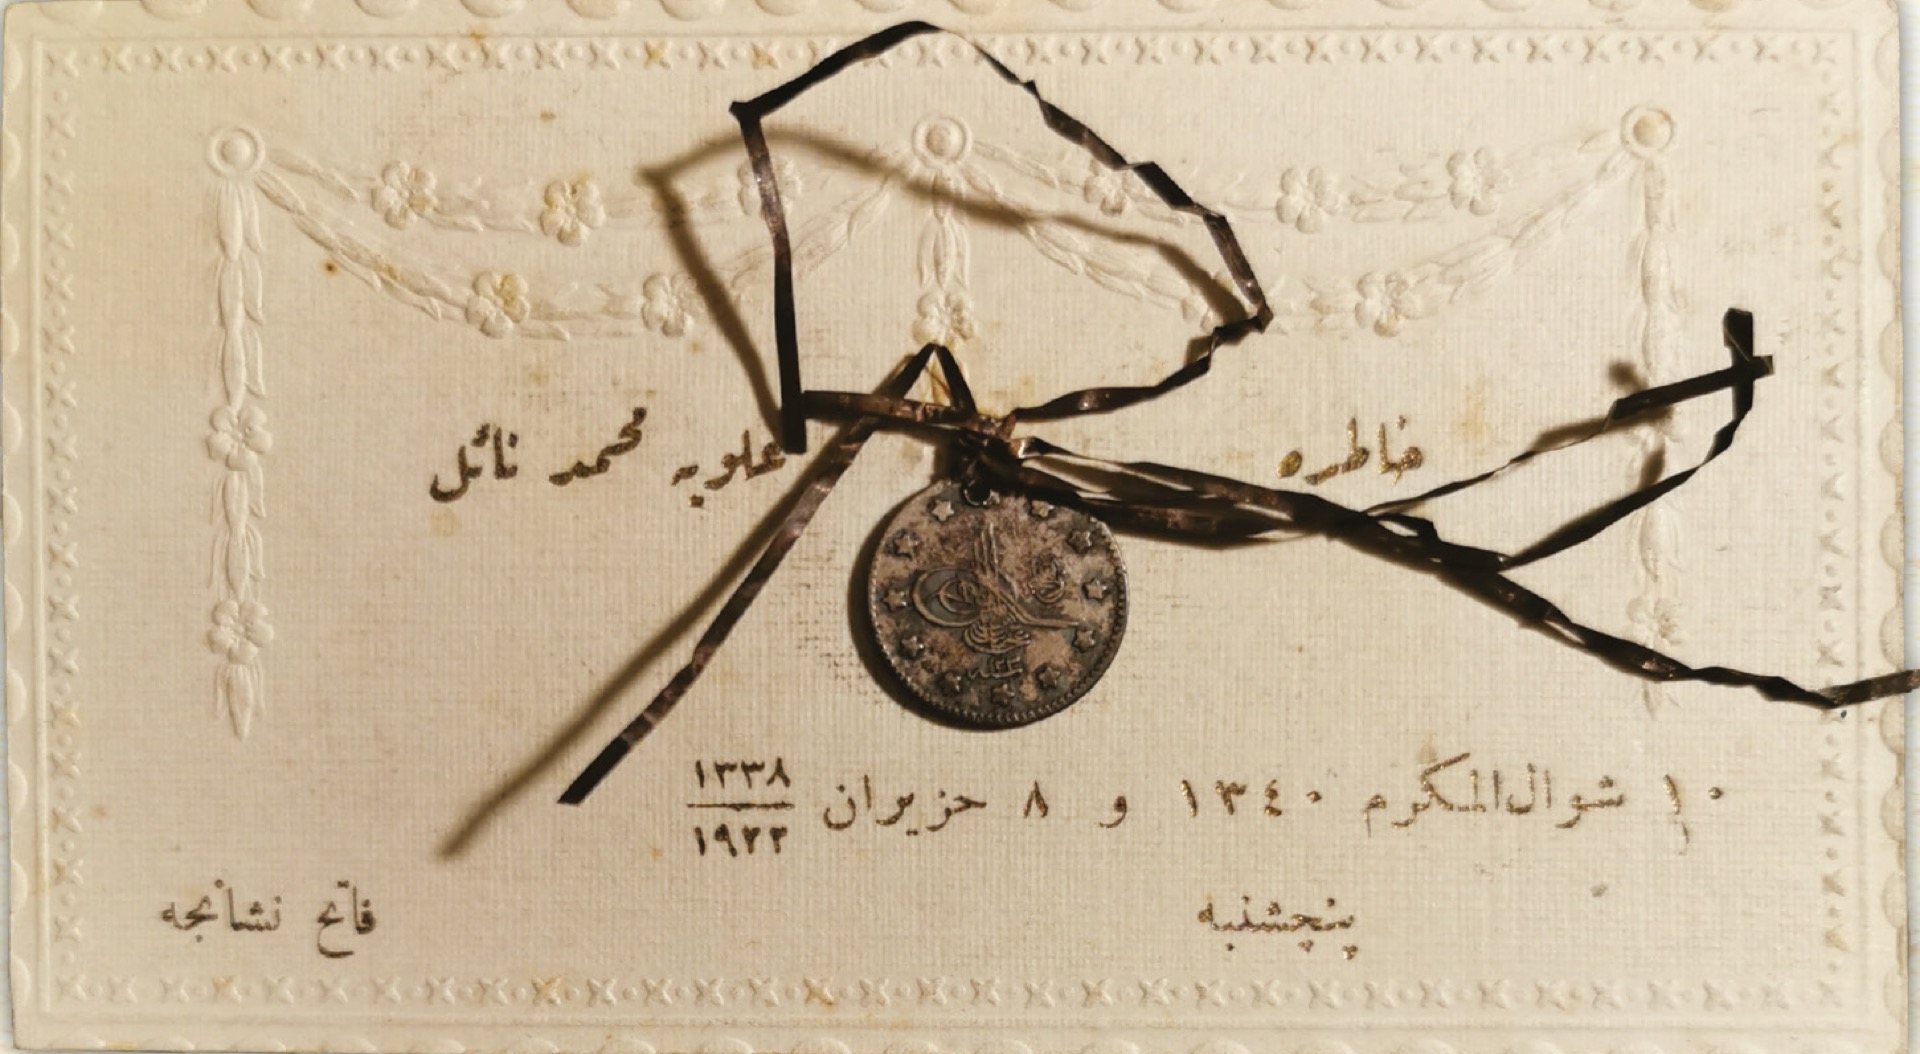 خاطره
علویه محمد نائل
١٠ شوال المکرم ١٣٤٠ و ٨ حزیران ١٣٣٨
١٩٢٢
پنچشنبه
فاتح نشانجه